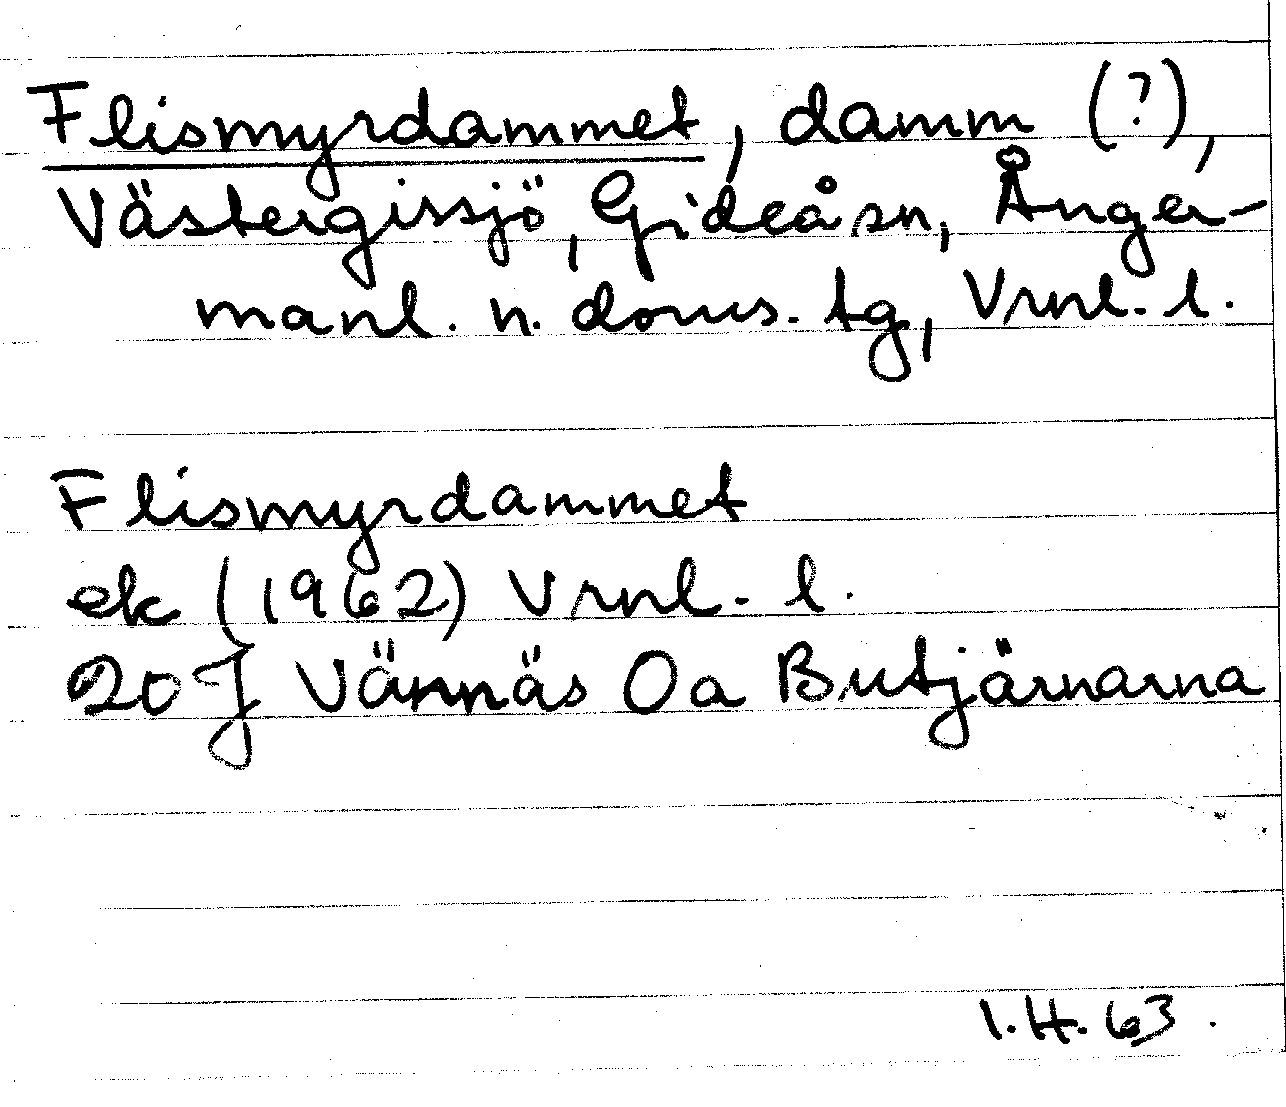 Flismyrdammet, damm (?),
Västergissjö, Gideå sn, Ånger-
manl. n. doms. tg, Vrnl. l.
Flismyrdammet
ek (1962) Vrnl. l.
20 J Vännäs 0a Butjärnarna
I.H. 63.